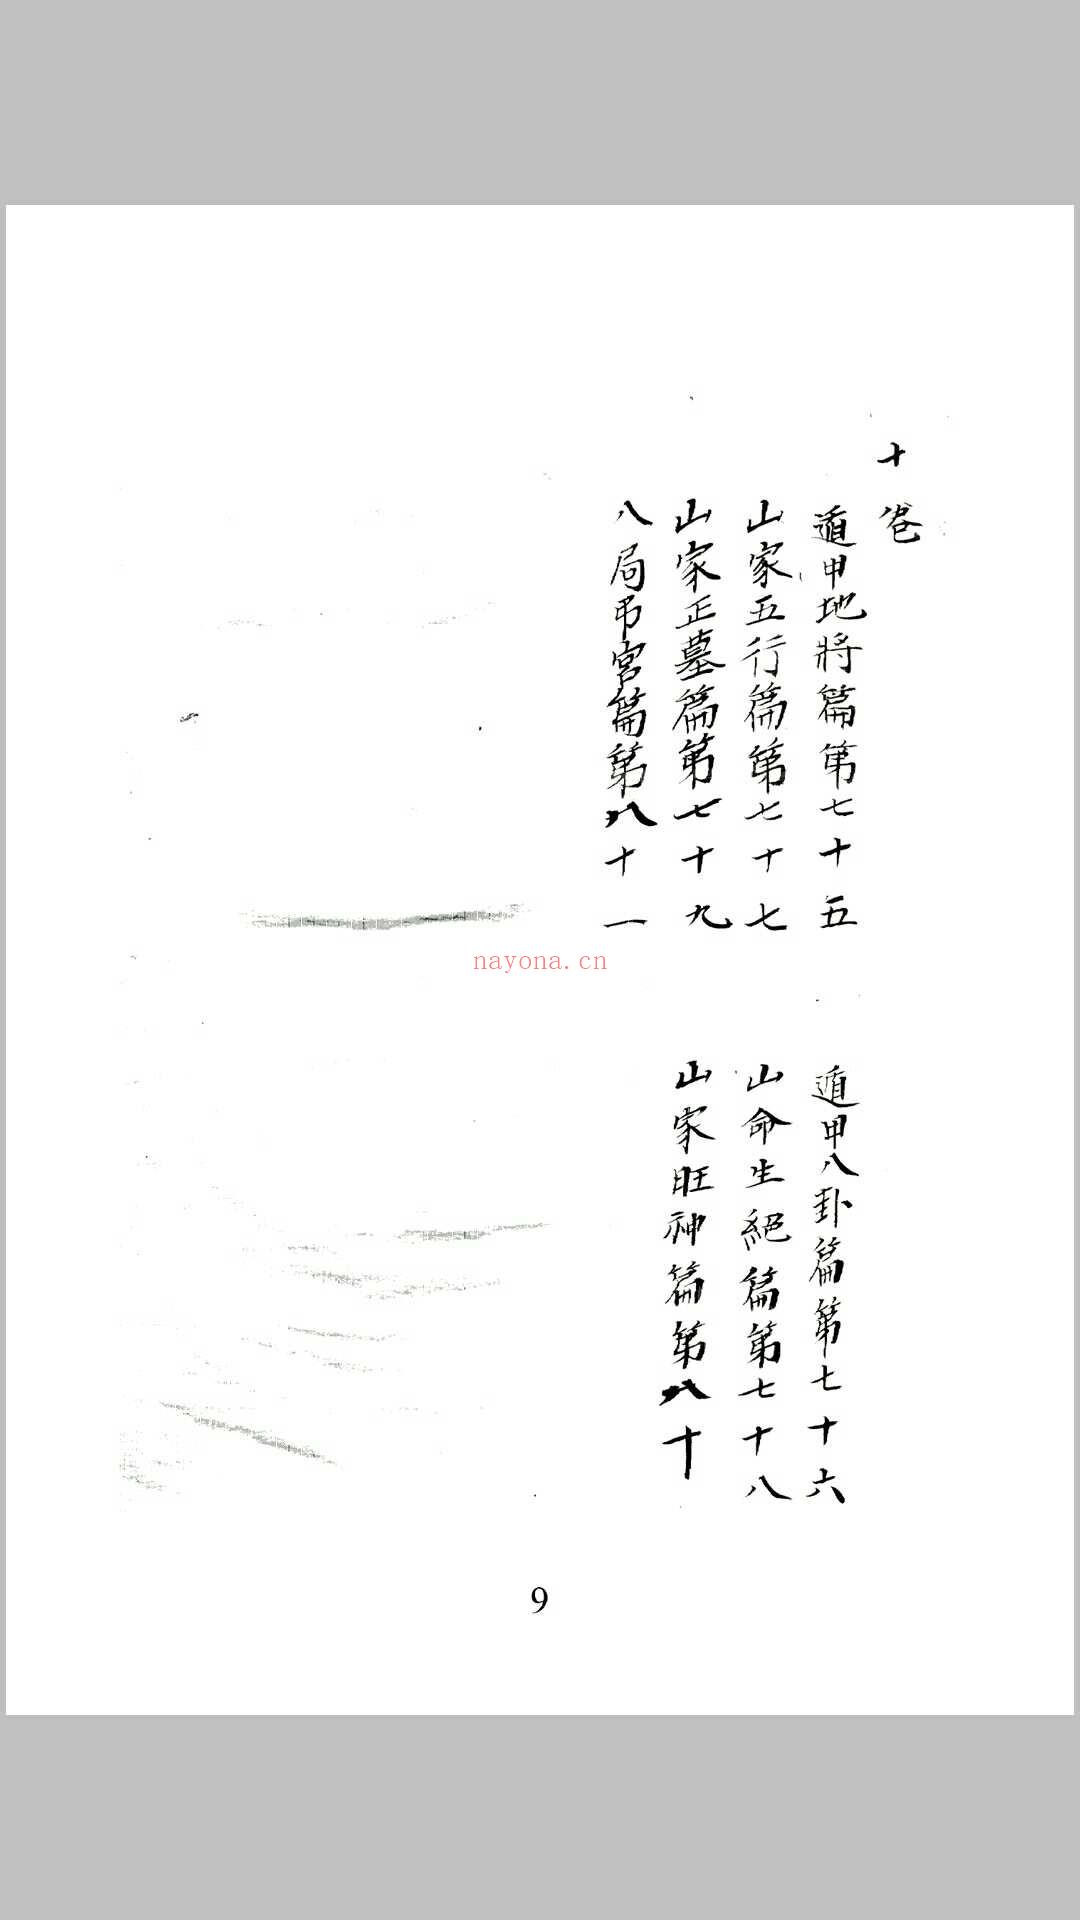 十卷
遁甲地將篇第七十五
遁甲八卦篇第七十六
山家五行篇第七十七
山命生絕篇第七十八
山家正墓篇第七十九
山家旺神篇第八十
八局弔宮篇第八十一
nayona.cn
9